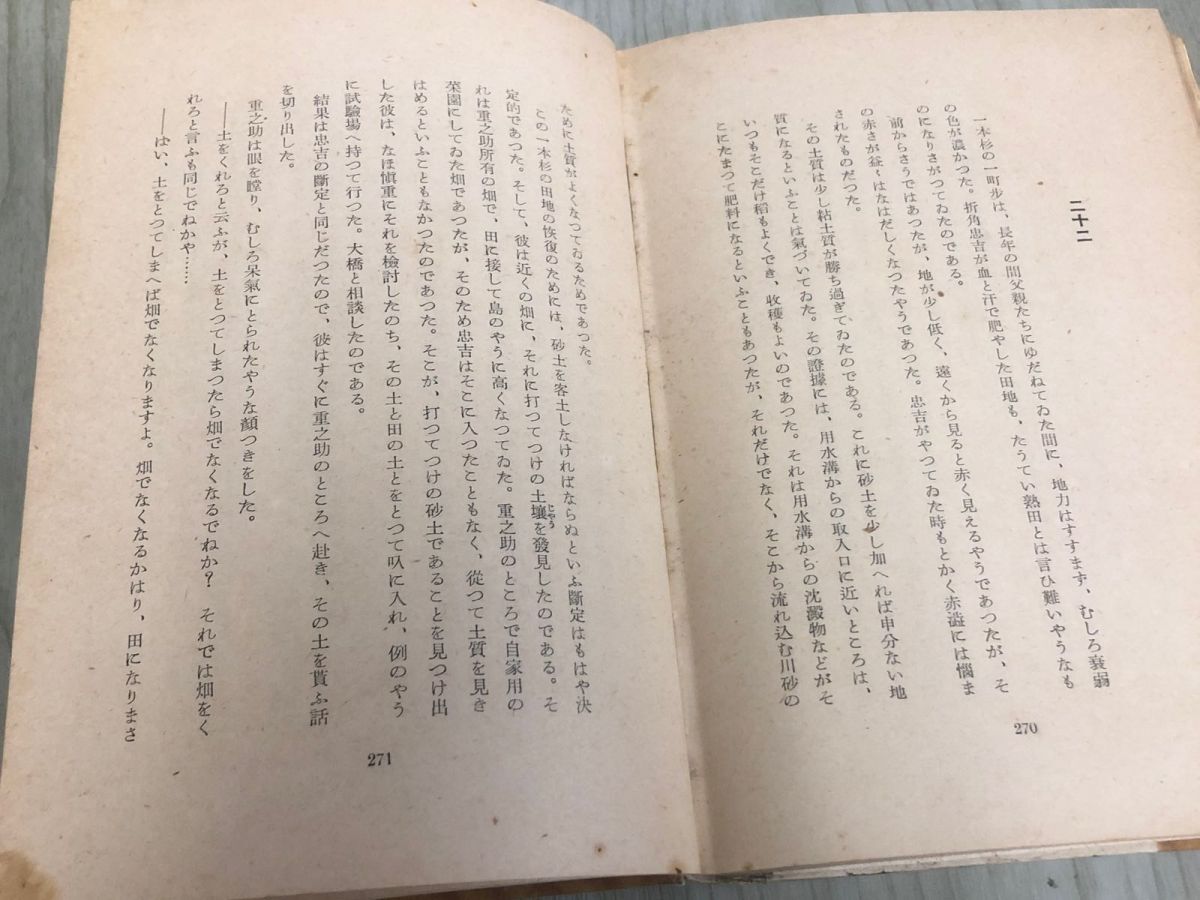 二十二
一本杉の一町步は、長年の間父親たちにゆだねてゐた間に、地力はすすまず、むしろ衰弱
の色が濃かつた。折角忠吉が血と汗で肥やした田地も、たうてい熟田とは言ひ難いやうなも
のになりさがつてゐたのである。
前からさうではあつたが、地が少し低く、遠くから見ると赤く見えるやうであつたが、そ
の赤さが益〻はなはだしくなつたやうであつた。忠吉がやつてゐた時もとかく赤澁には惱ま
されたものだつた。
その土質は少し粘土質が勝ち過ぎてゐたのである。これに砂土を少し加へれば申分ない地
質になるといふことは氣づいてゐた。その證據には、用水溝からの取入口に近いところは、
いつもそこだけ稻もよくでき、收穫もよいのであつた。それは用水溝からの沈澱物などがそ
こにたまつて肥料になるといふこともあつたが、それだけでなく、そこから流れ込む川砂の
270
ために土質がよくなつてゐるためであつた。
この一本杉の田地の恢復のためには、砂土を客土しなければならぬといふ斷定はもはや決
定的であつた。そして、彼は近くの畑に、それに打つてつけの土壤を發見したのである。そ
じやう
れは重之助所有の畑で、田に接して島のやうに高くなつてゐた。重之助のところで自家用の
菜園にしてゐた畑であつたが、そのため忠吉はそこに入つたこともなく、從つて土質を見き
はめるといふこともなかつたのであつた。そこが、打つてつけの砂土であることを見つけ出
した彼は、なほ愼重にそれを檢討したのち、その土と田の土とをとつて叺に入れ、例のやう
に試驗場へ持つて行つた。大橋と相談したのである。
結果は忠吉の斷定と同じだつたので、彼はすぐに重之助のところへ赴き、その土を貰ふ話
を切り出した。
重之助は眼を瞠り、むしろ呆氣にとられたやうな顏つきをした。
――土をくれろと云ふが、土をとつてしまつたら畑でなくなるでねか？　それでは畑をく
れろと言ふも同じでねかや……
――はい、土をとつてしまへば畑でなくなりますよ。畑でなくなるかはり、田になりまさ
271